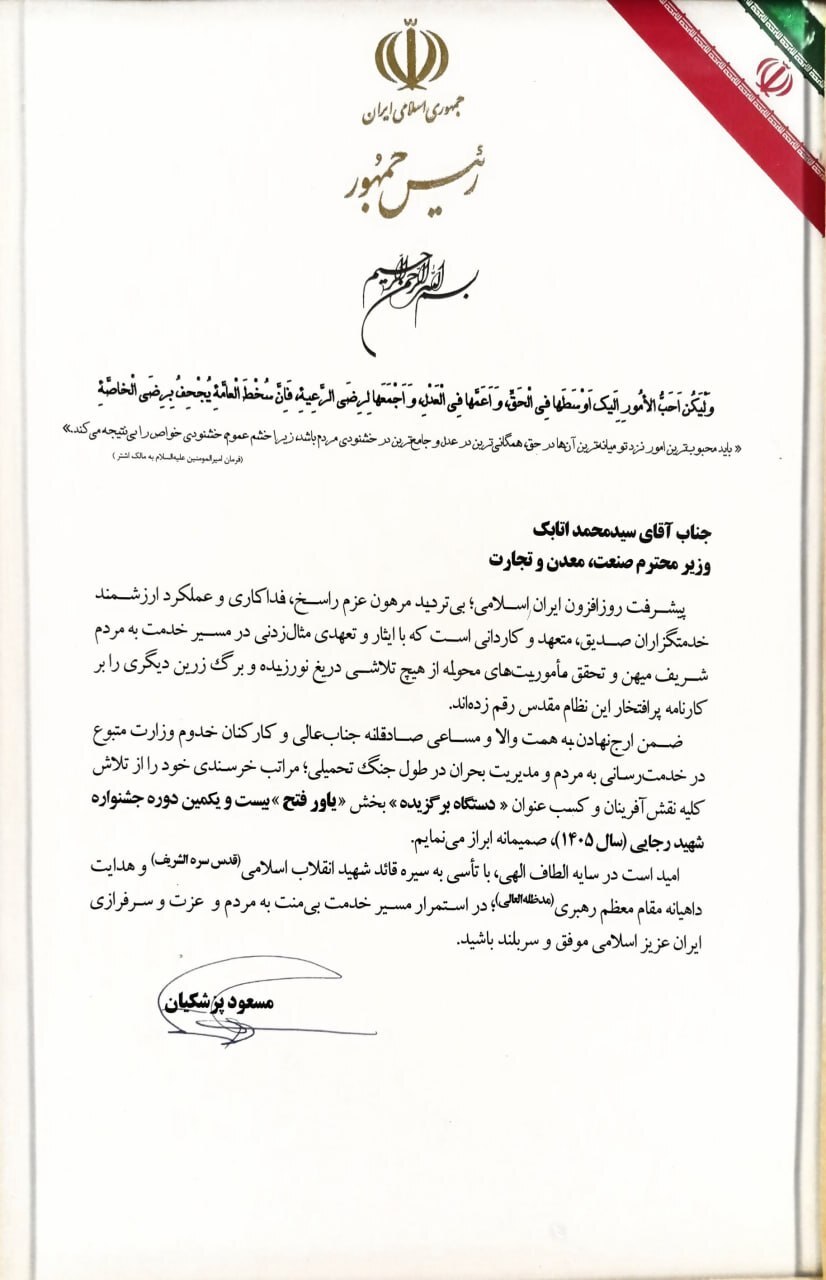 جمهوری اسلامی ایران
رئیس جمهور
بسم الله الرحمن الرحیم
وَلْیَکُن اَحَبُّ الأمُورِ اِلَیک اَوْسَطَها فِی الْحَقِّ، وَ اَعَمَّها فِی الْعَدْلِ، وَ اَجْمَعَها لِرِضَی الرَّعِیةِ، فَاِنَّ سُخْطَ الْعامَّةِ یُجْحِفُ بِرِضَی الْخاصَّةِ
« باید محبوب‌ترین امور نزد تو میانه‌ترین آن‌ها در حق، همگانی‌ترین در عدل و جامع‌ترین در خشنودی مردم باشد، زیرا خشم عموم، خشنودی خواص را بی‌نتیجه می‌کند.»
(فرمان امیرالمومنین علیه‌السلام به مالک اشتر )
جناب آقای سیدمحمد اتابک
وزیر محترم صنعت، معدن و تجارت
پیشرفت روزافزون ایران اسلامی؛ بی‌تردید مرهون عزم راسخ، فداکاری و عملکرد ارزشمند
خدمتگزاران صدیق، متعهد و کاردانی است که با ایثار و تعهدی مثال‌زدنی در مسیر خدمت به مردم
شریف میهن و تحقق مأموریت‌های محوله از هیچ تلاشی دریغ نورزیده و برگ زرین دیگری را بر
کارنامه پرافتخار این نظام مقدس رقم زده‌اند.
ضمن ارج‌نهادن به همت والا و مساعی صادقانه جناب‌عالی و کارکنان خدوم وزارت متبوع
در خدمت‌رسانی به مردم و مدیریت بحران در طول جنگ تحمیلی؛ مراتب خرسندی خود را از تلاش
کلیه نقش‌آفرینان و کسب عنوان « دستگاه برگزیده» بخش «یاور فتح» بیست و یکمین دوره جشنواره
شهید رجایی (سال ۱۴۰۵)، صمیمانه ابراز می‌نمایم.
امید است در سایه الطاف الهی، با تأسی به سیره قائد شهید انقلاب اسلامی(قدس سره الشریف) و هدایت
داهیانه مقام معظم رهبری(مدظله‌العالی)؛ در استمرار مسیر خدمت بی‌منت به مردم و عزت و سرفرازی
ایران عزیز اسلامی موفق و سربلند باشید.
مسعود پزشکیان